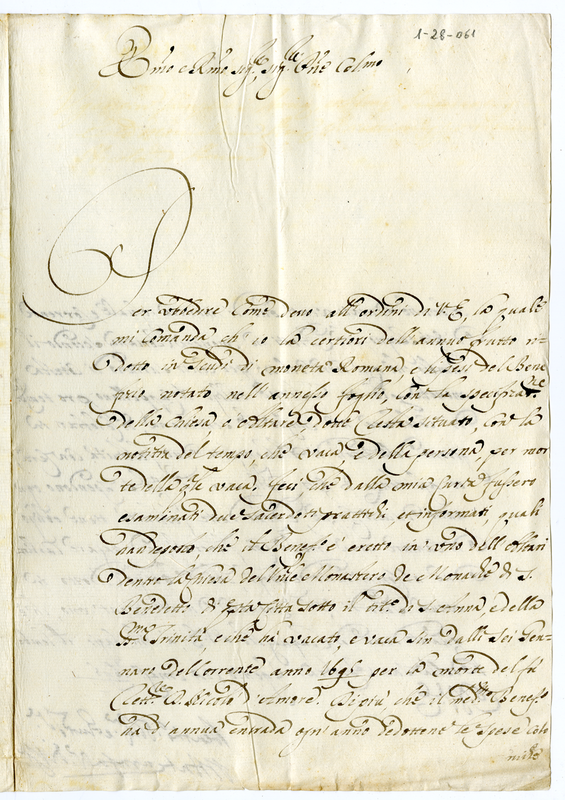 1-28-061
Emo e Rmo Sigre, sigre Pne Colmo
Per ubbedire come devo all'ordini di V. E., la quale
mi comanda ch'io la certiori dell'annuo frutto ri-
dotto in scudi di moneta Romana, e de pesi del Bene
ficio notato nell'annesso foglio, con la specificatne
della chiesa e Altare dove resta situato, con la
notitia del tempo, che vaca, e della persona, per mor
te della qle vaca. Feci, che dalla mia Curia fussero
esaminati due sacerdoti prattichi, et informati, quali
han deposto che il Benefo è eretto in uno dell'Altari
dentro la chiesa del Vene Monastero de Monache di S.
Benedetto di questa Città sotto il titlo di S. Anna, e della
SSma Trinità, e che ha vacato, e vaca sin dalli sei Gen-
naro del corrente anno 1695 per la morte del fù
D. Nicolò d'Amore. Di più, che il medmo Benefio
ha d'annua entrada ogn'anno dedottene le spese